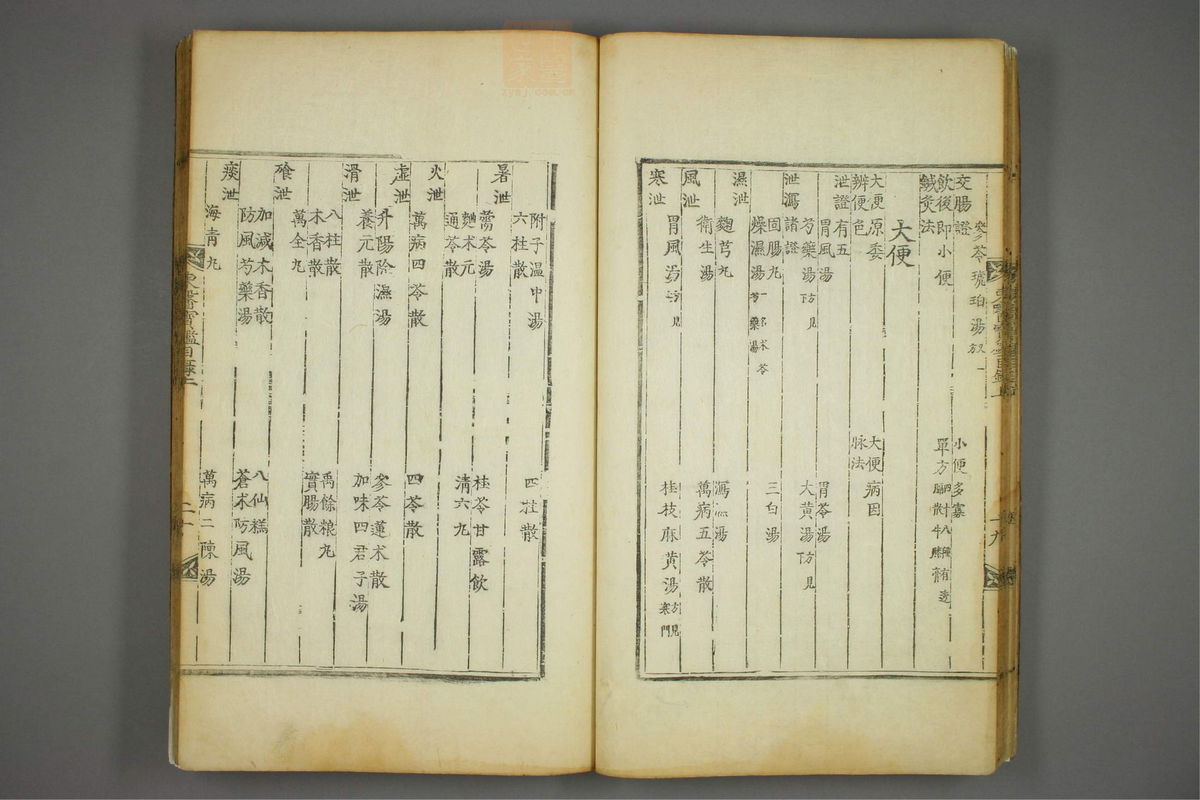 交腸證
茯苓琥珀湯
小便多寡
飲後即小便
單方
鍼灸法
大便
大便原委
大便病因
辨便色
脉法
泄證有五
胃風湯
胃苓湯
芍藥湯
大黃湯
泄瀉諸證
固腸丸
三白湯
燥濕湯
濕泄
麴芎丸
瀉濕湯
衛生湯
萬病五苓散
風泄
胃風湯
寒泄
桂枝麻黃湯方見寒門
附子溫中湯
四柱散
六柱散
暑泄
薷苓湯
桂苓甘露飲
麯朮元
清六丸
通苓散
火泄
萬病四苓散
四苓散
虛泄
升陽除濕湯
參苓蓮朮散
養元散
加味四君子湯
滑泄
八柱散
禹餘粮丸
木香散
實腸散
萬全丸
飱泄
加減木香散
八仙糕
防風芍藥湯
蒼朮防風湯
痰泄
海青丸
萬病二陳湯
東醫寶鑑目錄上
二十